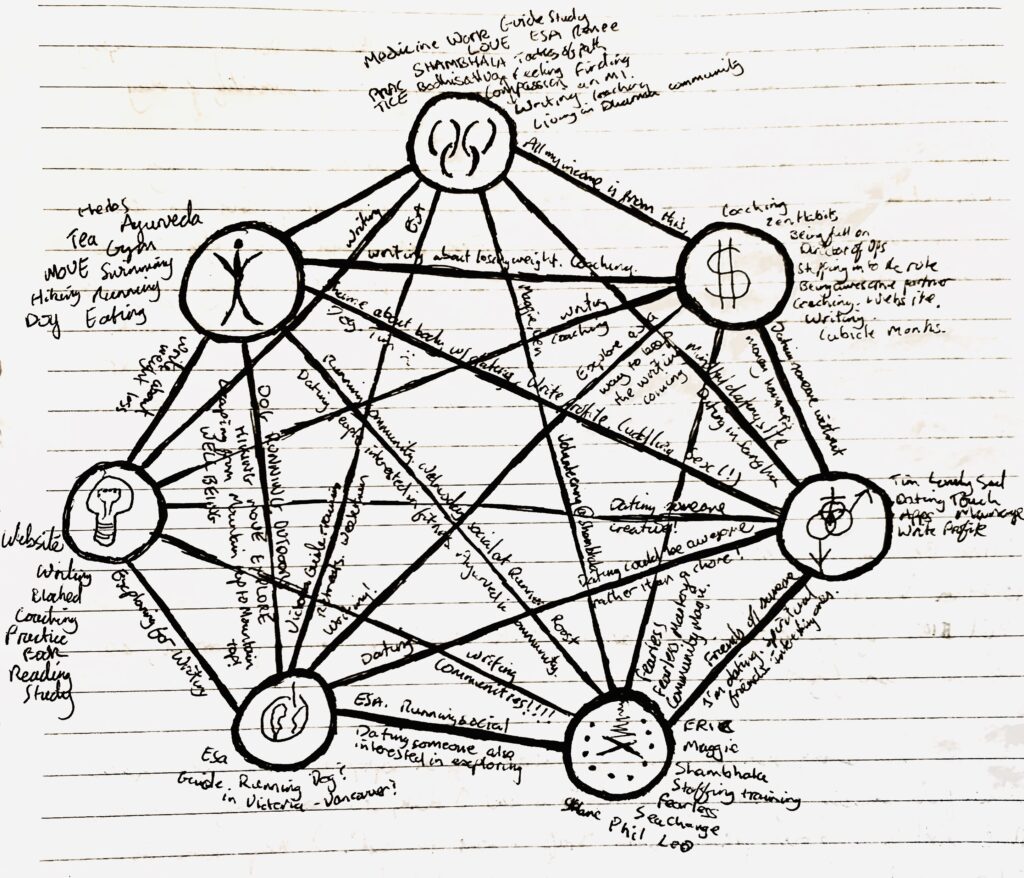 Medicine Work Guide Study
LOVE ESA Renee
SHAMBHALA of path
TICE Bodhisattva feeling finding
Compassion in M1.
Writing. Coaching
Living in Dharma community
All my income is from this
Coaching
Zen Habits
Being full on
Director of Ops
Stepping into the role
Being awesome partner
Coaching. Website.
Writing.
Cubicle Months.
Herbs
Ayurveda
Tea Gym
MOVE Swimming
Hiking Running
Dog Eating
Writing
ESA
writing about losing weight. Coaching.
Maggie
Writing
Coaching
Explore as a
way to keep
the writing
coming
Mindful dating life
Dating in Sangha
Dating someone without
money
Write about
weight loss
about book w/ dating. Write profile
Running community. Wednesday social at Runners Roost
Dating people interested in fitness. Ayurveda community.
DOG RUNNING OUTDOORS
HIKING MOVE EXPLORE
WELL BEING
Victoria
retreats.
Volunteering @ Shambhala
Dating someone
creative!
Dating could be awesome
rather than a chore!
Tim
Dating Touch
Apps
Write Profile
Website
Writing
Coaching
Practice
Book
Reading
Study
Exploring for Writing
Writing!
Dating
Writing
Communities!!!!
Fearless
Fearless Mastery
Community Magic.
Friends of
I'm dating. Spiritual
friends. Interesting ones.
ESA. Running social
Dating someone also
interested in exploring
ESA
Guide. Running Dog?
in Victoria - Vancouver?
ERIC
Maggie
Shambhala
Staffing training
Fearless
Sea Change
Phil Leo